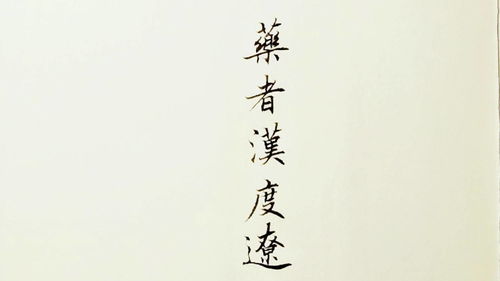 藥者漢度遼